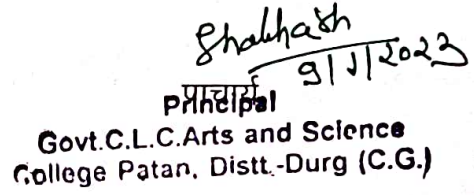 9/1/2023
प्राचार्य
Principal
Govt.C.L.C.Arts and Science
College Patan, Distt.-Durg (C.G.)